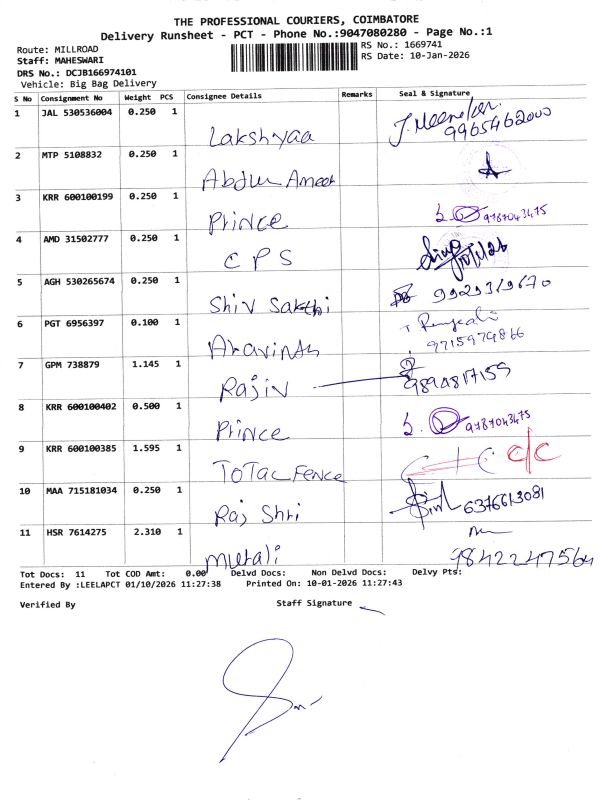 THE PROFESSIONAL COURIERS, COIMBATORE
Delivery Runsheet - PCT - Phone No.:9047080280 - Page No.:1
Route: MILLROAD
RS No.: 1669741
Staff: MAHESWARI
RS Date: 10-Jan-2026
DRS No.: DCJB166974101
Vehicle: Big Bag Delivery
S No Consignment No Weight PCS Consignee Details Remarks Seal & Signature
1 JAL 530536004 0.250 1 Lakshyaa 9965462000
2 MTP 5108832 0.250 1 Abdul Ameer
3 KRR 600100199 0.250 1 Prince 9787043475
4 AMD 31502777 0.250 1 CPS 10/1/26
5 AGH 530265674 0.250 1 Shiv Sakthi 9929319670
6 PGT 6956397 0.100 1 Aravinth 9715979866
7 GPM 738879 1.145 1 Rajiv 9894817159
8 KRR 600100402 0.500 1 Prince 9787043475
9 KRR 600100385 1.595 1 Total Fence c/c
10 MAA 715181034 0.250 1 Raj Shri 6376613081
11 HSR 7614275 2.310 1 Murali 9842247564
Tot Docs: 11 Tot COD Amt: 0.00 Delvd Docs: Non Delvd Docs: Delvy Pts:
Entered By :LEELAPCT 01/10/2026 11:27:38 Printed On: 10-01-2026 11:27:43
Verified By Staff Signature